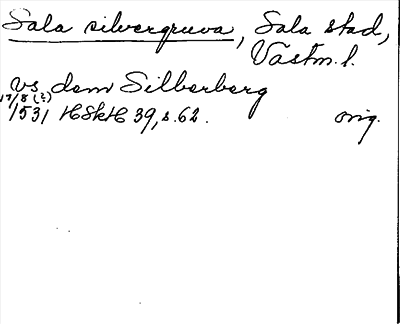 Sala silvergruva, Sala stad,
Västm. l.
vs dem Silberberg
17/8 (?)
1531 HSkH 39, s. 62. orig.